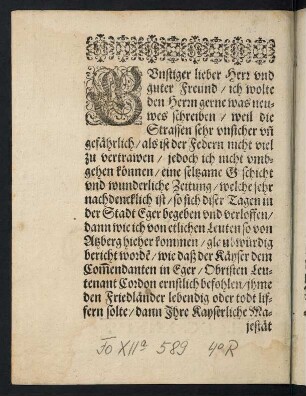 GUnstiger lieber Herr vnd
guter Freund / ich wolte
den Herrn gerne was neu-
wes schreiben / weil die
Strassen sehr vnsicher vñ
gefährlich / als ist der Federn nicht viel
zu vertrawen / jedoch ich nicht vmb-
gehen können / eine seltzame Gschicht
vnd wunderliche Zeitung / welche sehr
nachdencklich ist / so sich diser Tagen in
der Stadt Eger begeben vnd verloffen /
dann wie ich von etlichen Leuten so von
Atzberg hieher kommen / glaubwürdig
bericht wordē / wie daß der Käyser dem
Com̃endanten in Eger / Obristen Leu-
tenant Cordon ernstlich befohlen / jhme
den Friedländer lebendig oder todt lif-
fern solte / dann Jhre Kayserliche Ma-
jestät
Fo XIIa 589 4° R